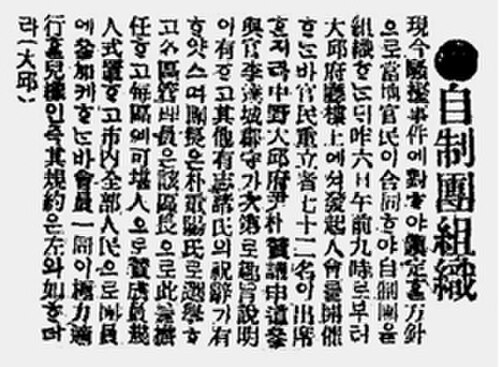 ●自制團組織
現今騷擾事件에對ᄒᆞ야鎭定ᄒᆞᆯ方針
으로當地官民이合同ᄒᆞ야自制團을
組織ᄒᆞᄂᆞᆫᄃᆡ昨六日午前九時로부터
大邱府廳樓上에셔發起人會를開催
ᄒᆞᆫ바官民重立者七十二名이出席
ᄒᆞ지라中野大邱府尹朴 贊議申道參
與官李達城郡守가次第로趣旨說明
이有ᄒᆞ고其他有志諸氏의祝辭가有
ᄒᆞ얏스며團長은朴重陽氏로選擧ᄒᆞ
고各區管理員은該區長으로此를擔
任ᄒᆞ고每區에可堪人으로贊成員幾
人式置ᄒᆞ고市內全部人民으로團員
에參加케ᄒᆞᄂᆞᆫ바會員一同이極力適
行ᄒᆞᆯ兒樣인즉其規約은左와如ᄒᆞ더
라(大邱)